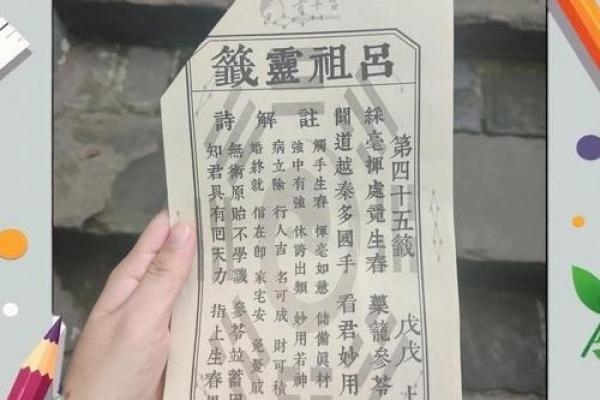 呂祖靈籤
第四十五籤 戊戌 上
綵毫揮處竟生春 藥籠參苓
聞道越秦多國手 看君妙用
註解
觸手生春 揮毫如意 儲備眞材
強中有強 休誇出類 妙用若神
病立除 行人吉 名可成 財可積
婚終就 信在即 家宅安
詩
無術原貽不學譏 參苓並蓄
知君具有回天力 指上生春